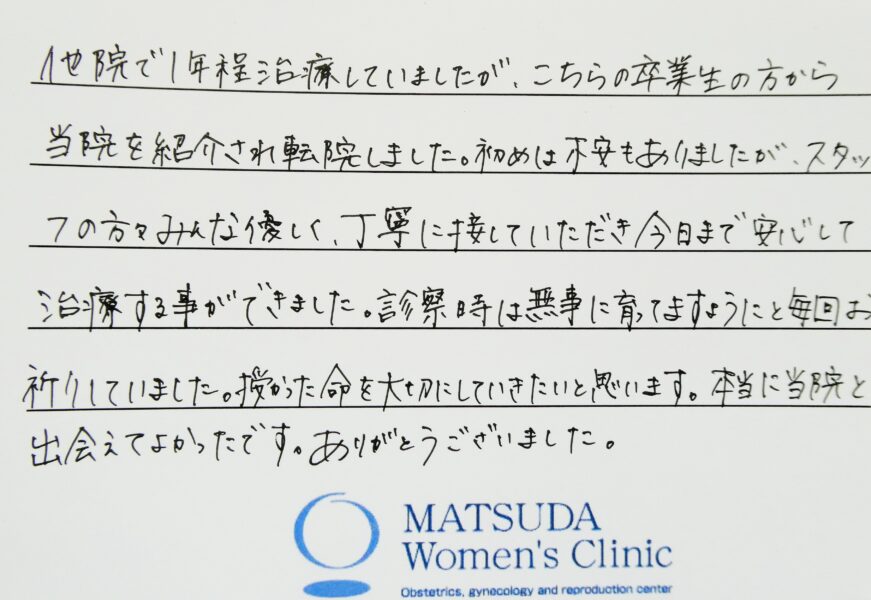 他院で1年程治療していましたが、こちらの卒業生の方から
当院を紹介され転院しました。初めは不安もありましたが、スタッ
フの方々みんな優しく、丁寧に接していただき今日まで安心して
治療する事ができました。診察時は無事に育ってますようにと毎回お
祈りしていました。授かった命を大切にしていきたいと思います。本当に当院と
出会えてよかったです。ありがとうございました。
MATSUDA
Women's Clinic
Obstetrics, gynecology and reproduction center